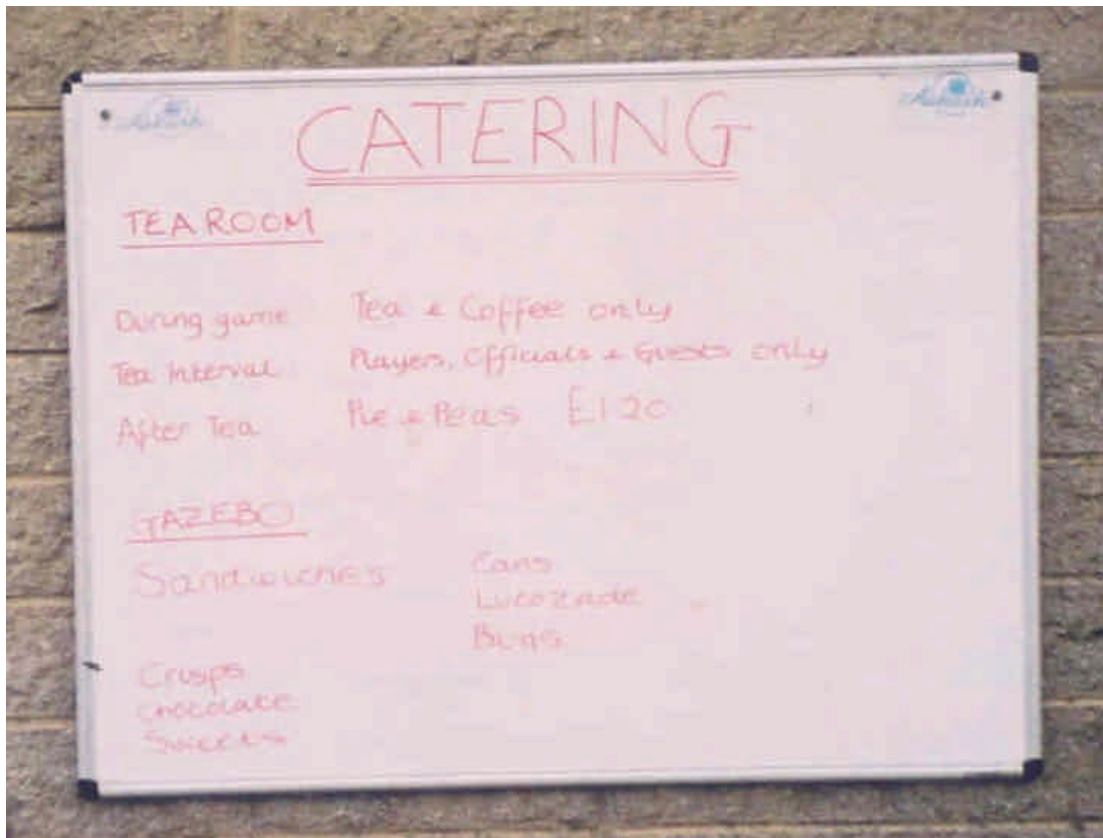 CATERING
TEA ROOM
During game Tea & Coffee only
Tea Interval Players, Officials & Guests only
After Tea Pie & Peas £1.20
GAZEBO
Sandwiches Cans
Lucozade
Crisps
Chocolate
Sweets